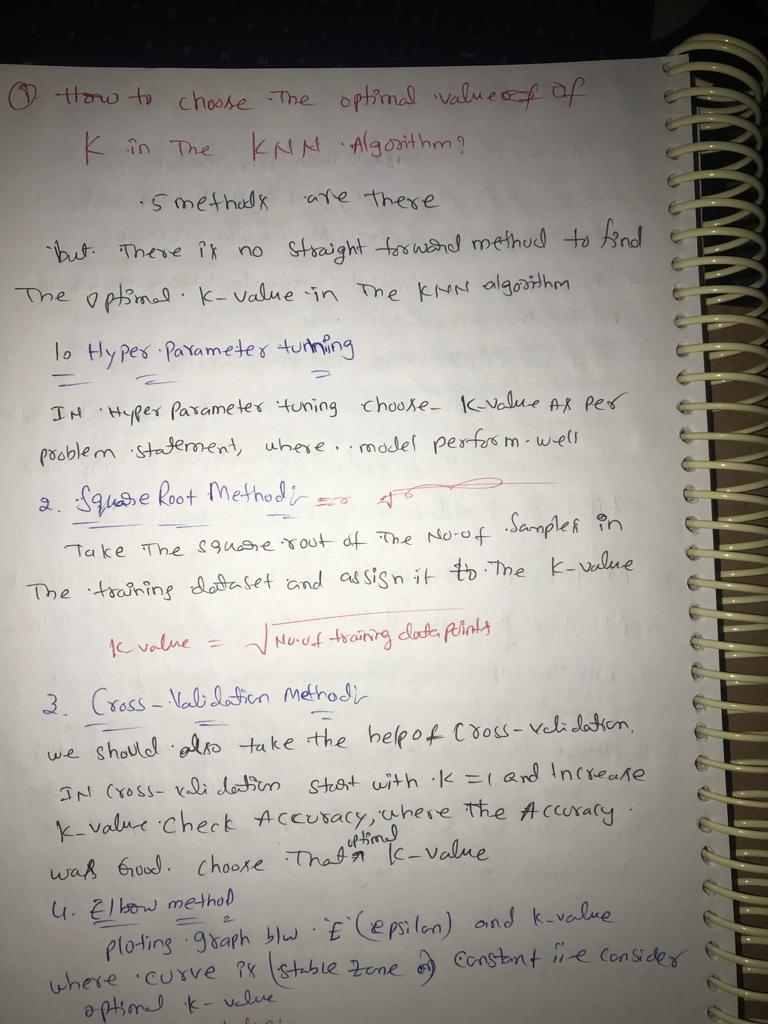 ① How to choose The optimal value of
K in The KNN Algorithm?
.5 methods are there
but There is no Straight forward method to find
The optimal K-value in The KNN algorithm
1. Hyper Parameter tunning
IN Hyper Parameter tuning choose K-value As per
problem statement, where model perform well
2. Square Root Method:-
Take The square root of The No.of Samples in
The training dataset and assign it to The K-value
K value = √No.of training data points
3. Cross-Validation Method:-
we should also take the help of Cross-validation.
IN Cross-validation start with K=1 and Increase
K-value Check Accuracy, where The Accuracy
was Good. choose That optimal K-value
4. Elbow method
ploting graph b/w 'E' (epsilon) and K-value
where curve is (stable zone or) constant i.e consider
optimal K-value